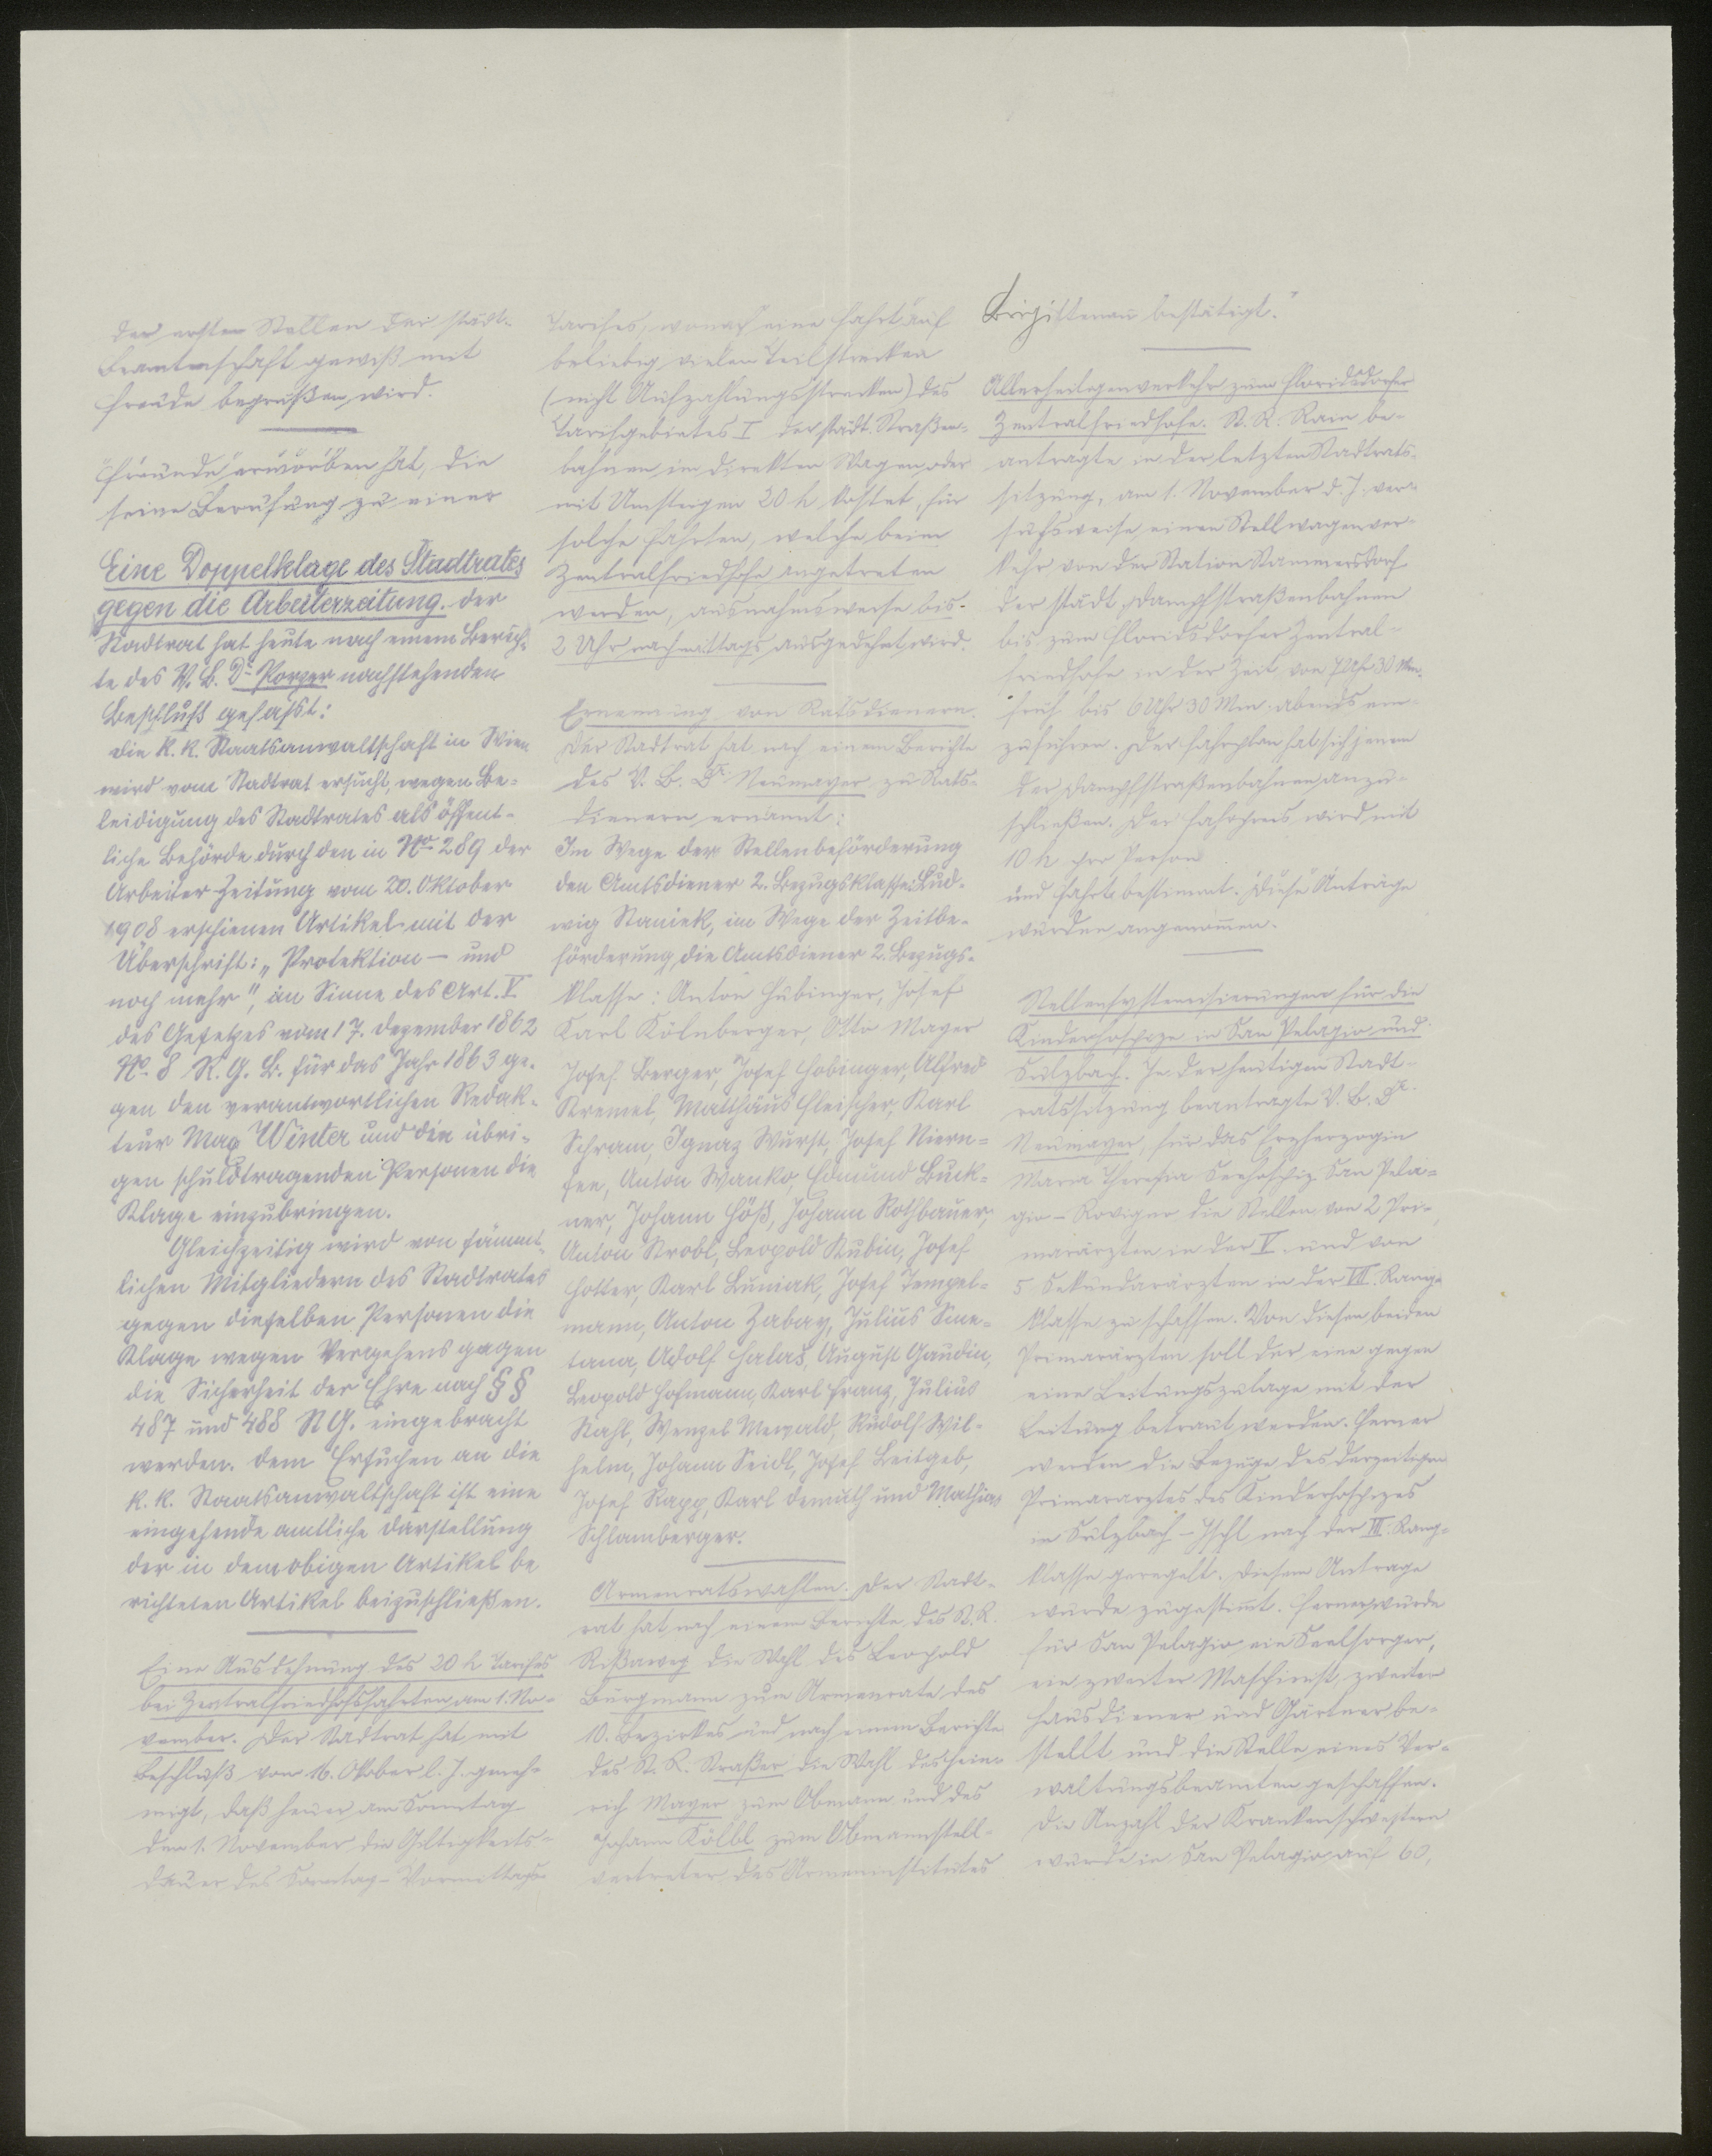 der ersten Stellen der städt.
Beamtenschaft gewiß mit
Freude begrüßen wird.
Freunde erworben hat, die
seine Berufung zu einer
Eine Doppelklage des Stadtrates
gegen die Arbeiterzeitung. Der
Stadtrat hat heute nach einem Berich-
te des V. B. Dr. Porzer nachstehenden
Beschluß gefaßt:
Die k. k. Staatsanwaltschaft in Wien
wird vom Stadtrat ersucht, wegen Be-
leidigung des Stadtrates als öffent-
liche Behörde durch den in No. 289 der
Arbeiter-Zeitung vom 20. Oktober
1908 erschienen Artikel mit der
Überschrift: „Protektion – und
noch mehr", im Sinne des Art. V
des Gesetzes vom 17. Dezember 1862
No. 8 R. G. B. für das Jahr 1863 ge-
gen den verantwortlichen Redak-
teur Max Winter und die übri-
gen schuldtragenden Personen die
Klage einzubringen.
Gleichzeitig wird von sämmt-
lichen Mitgliedern des Stadtrates
gegen dieselben Personen die
Klage wegen Vergehens gegen
die Sicherheit der Ehre nach §§
487 und 488 St.G. eingebracht
werden. Dem Ersuchen an die
k. k. Staatsanwaltschaft ist eine
eingehende amtliche Darstellung
der in dem obigen Artikel be
richteten Artikel beizuschließen.
Eine Ausdehnung des 20 h Tarifes
bei Zentralfriedhofsfahrten am 1. No-
vember. Der Stadtrat hat mit
Beschluß vom 16. Oktober l. J. geneh-
migt, daß heuer am Sonntag
den 1. November die Giltigkeits-
dauer des Sonntag-Vormittags-
Tarifes, wonach eine Fahrt auf
beliebig vielen Teilstrecken
(nicht Aufzahlungsstrecken) des
Tarifgebietes I der städt. Straßen-
bahnen im direkten Wagen oder
mit Umsteigen 20 h kostet, für
solche Fahrten, welche beim
Zentralfriedhofe angetreten
werden, ausnahmsweise bis
2 Uhr nachmittags ausgedehnt wird.
Ernennung von Ratsdienern.
Der Stadtrat hat nach einem Berichte
des V. B. Dr. Neumayer zu Rats-
dienern ernannt:
Im Wege der Stellenbeförderung
den Amtsdiener 2. Bezugsklasse Lud-
wig Staniek, im Wege der Zeitbe-
förderung die Amtsdiener 2. Bezugs-
klasse: Anton Hubinger, Josef
Karl Kölnberger, Otto Mayer
Josef Berger, Josef Hobinger, Alfred
Kremel, Matthäus Fleischer, Karl
Schram, Ignaz Wurst, Josef Niern-
see, Anton Wanko, Edmund Buck-
ner, Johann Höß, Johann Rothbauer,
Anton Strobl, Leopold Kubin, Josef
Hotter, Karl Luniak, Josef Tempel-
mann, Anton Zabay, Julius Sme-
tana, Adolf Halaš, August Gaudin,
Leopold Hofmann, Karl Franz, Julius
Stahl, Wenzel Mewald, Rudolf Wil-
helm, Johann Seidl, Josef Leitgeb,
Josef Rapp, Karl Demuth und Mathias
Schlamberger.
Armenratswahlen. Der Stadt-
rat hat nach einem Berichte des St. R.
Rißaweg die Wahl des Leopold
Burgmann zum Armenrate des
10. Bezirkes und nach einem Berichte
des St. R. Straßer die Wahl des Hein-
rich Mayer zum Obmann und des
Johann Kölbl zum Obmannstell-
vertreter des Armeninstitutes
Brigittenau bestätigt.
Allerheiligenverkehr zum Floridsdorfer
Zentralfriedhofe. St. R. Rain be-
antragte in der letzten Stadtrats-
sitzung, am 1. November d. J. ver-
suchsweise einen Stellwagenver-
kehr von der Station Stammersdorf
der städt. Dampfstraßenbahnen
bis zum Floridsdorfer Zentral-
friedhofe in der Zeit von 7 Uhr 30 Min.
früh bis 6 Uhr 30 Min. abends ein-
zuführen. Der Fahrplan hat sich jenem
der Dampfstraßenbahnen anzu-
schließen. Der Fahrpreis wird mit
10 h per Person
und Fahrt bestimmt. Diese Anträge
wurden angenommen.
Stellensystemisierungen für die
Kinderhospize in San Pelagio und
Sulzbach. In der heutigen Stadt-
ratssitzung beantragte V. B. Dr.
Neumayer, für das Erzherzogin
Maria Theresia Seehospiz San Pela-
gio – Rovigno die Stellen von 2 Pri-
marärzten in der V. und von
5 Sekundarärzten in der VIII. Rang-
klasse zu schaffen. Von diesen beiden
Primarärzten soll der eine gegen
eine Leitungszulage mit der
Leitung betraut werden. Ferner
werden die Bezüge des derzeitigen
Primararztes des Kinderhospizes
in Sulzbach – Ischl nach der III. Rang-
klasse geregelt. Diesem Antrage
wurde zugestimmt. Ferner wurde
für San Pelagio ein Seelsorger,
ein zweiter Maschinist, zweiter
Hausdiener und Gärtner be-
stellt und die Stelle eines Ver-
waltungsbeamten geschaffen.
Die Anzahl der Krankenschwestern
wurde in San Pelagio auf 60,